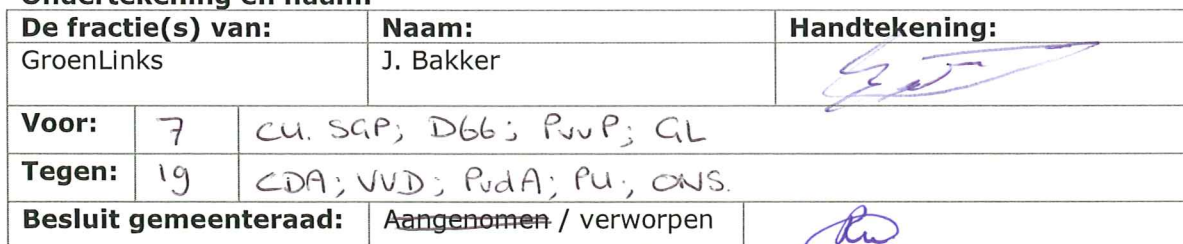 De fractie(s) van: Naam: Handtekening:
GroenLinks J. Bakker
Voor: 7 CU. SGP; D66; PvvP; GL
Tegen: 19 CDA; VVD; PvdA; PU; ONS.
Besluit gemeenteraad: Aangenomen / verworpen